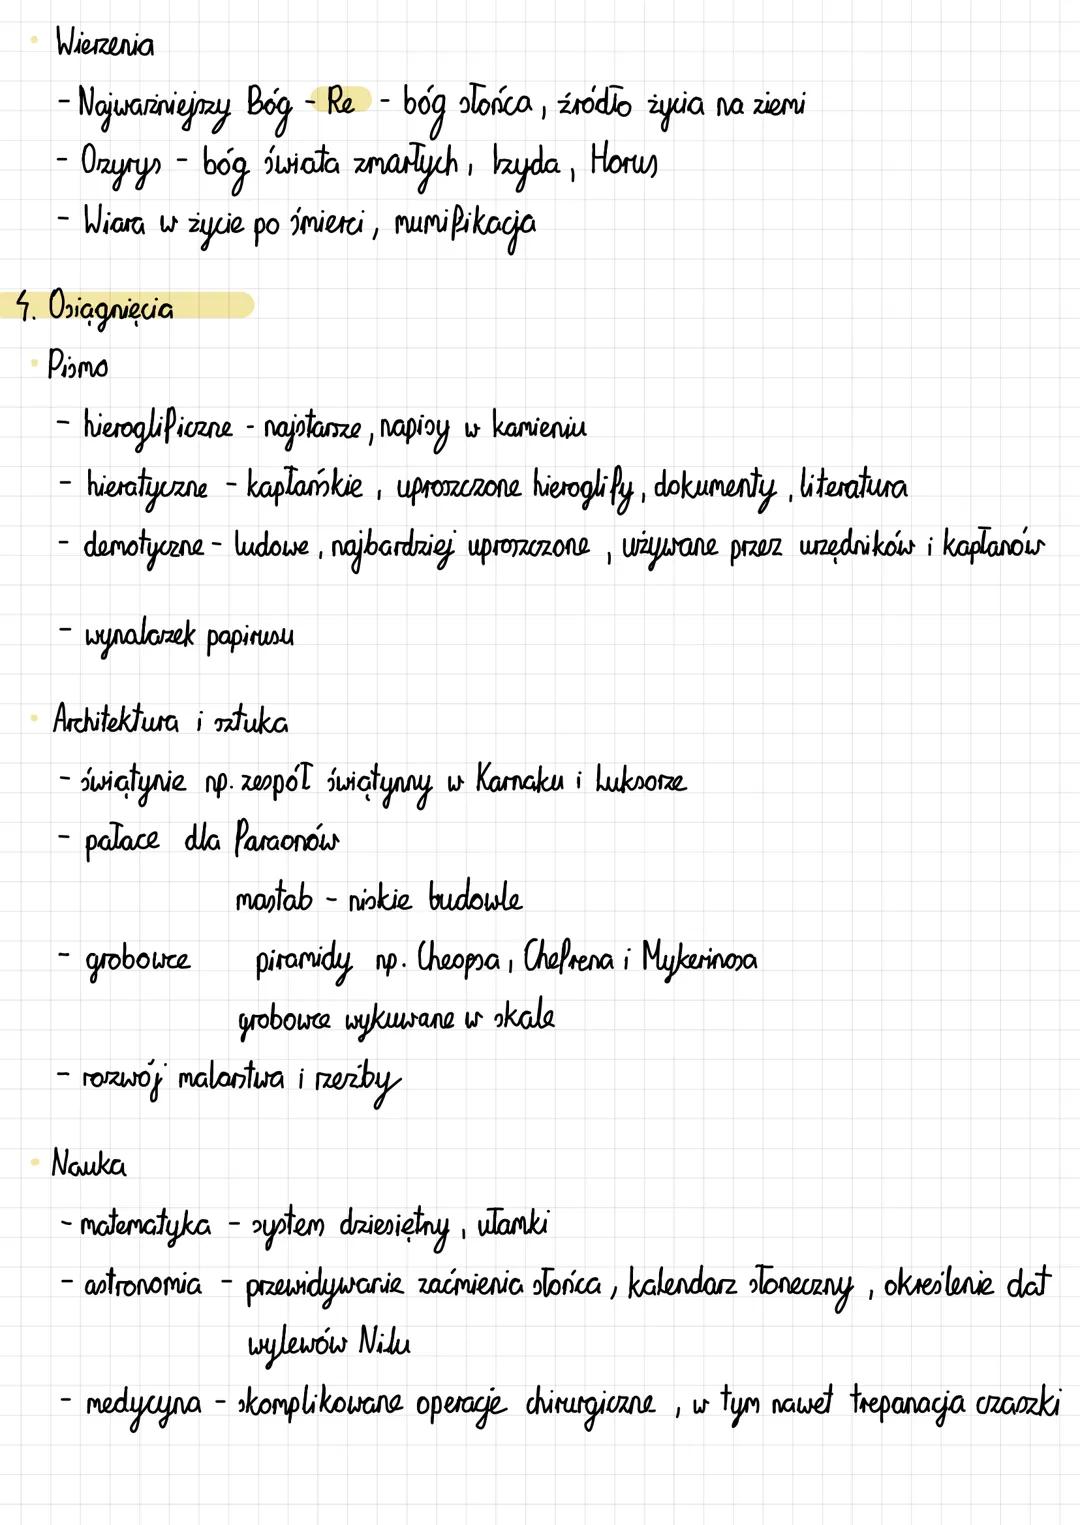 • Wierzenia
- Najważniejszy Bóg - Re - bóg słońca, źródło życia na ziemi
- Ozyrys - bóg świata zmarłych, Izyda, Horus
- Wiara w życie po śmierci, mumifikacja
4. Osiągnięcia
• Pismo
- hieroglificzne - najstarsze, napisy w kamieniu
- hieratyczne - kapłańskie, uproszczone hieroglify, dokumenty, literatura
- demotyczne - ludowe, najbardziej uproszczone, używane przez urzędników i kapłanów
- wynalazek papirusu
• Architektura i sztuka
- świątynie np. zespół świątynny w Karnaku i Luksorze
- pałace dla Faraonów
mastab - niskie budowle
- grobowce piramidy np. Cheopsa, Chefrena i Mykerinosa
grobowce wykuwane w skale
- rozwój malarstwa i rzeźby
• Nauka
- matematyka - system dziesiętny, ułamki
- astronomia - przewidywanie zaćmienia słońca, kalendarz słoneczny, określenie dat
wylewów Nilu
- medycyna - skomplikowane operacje chirurgiczne, w tym nawet trepanacja czaszki